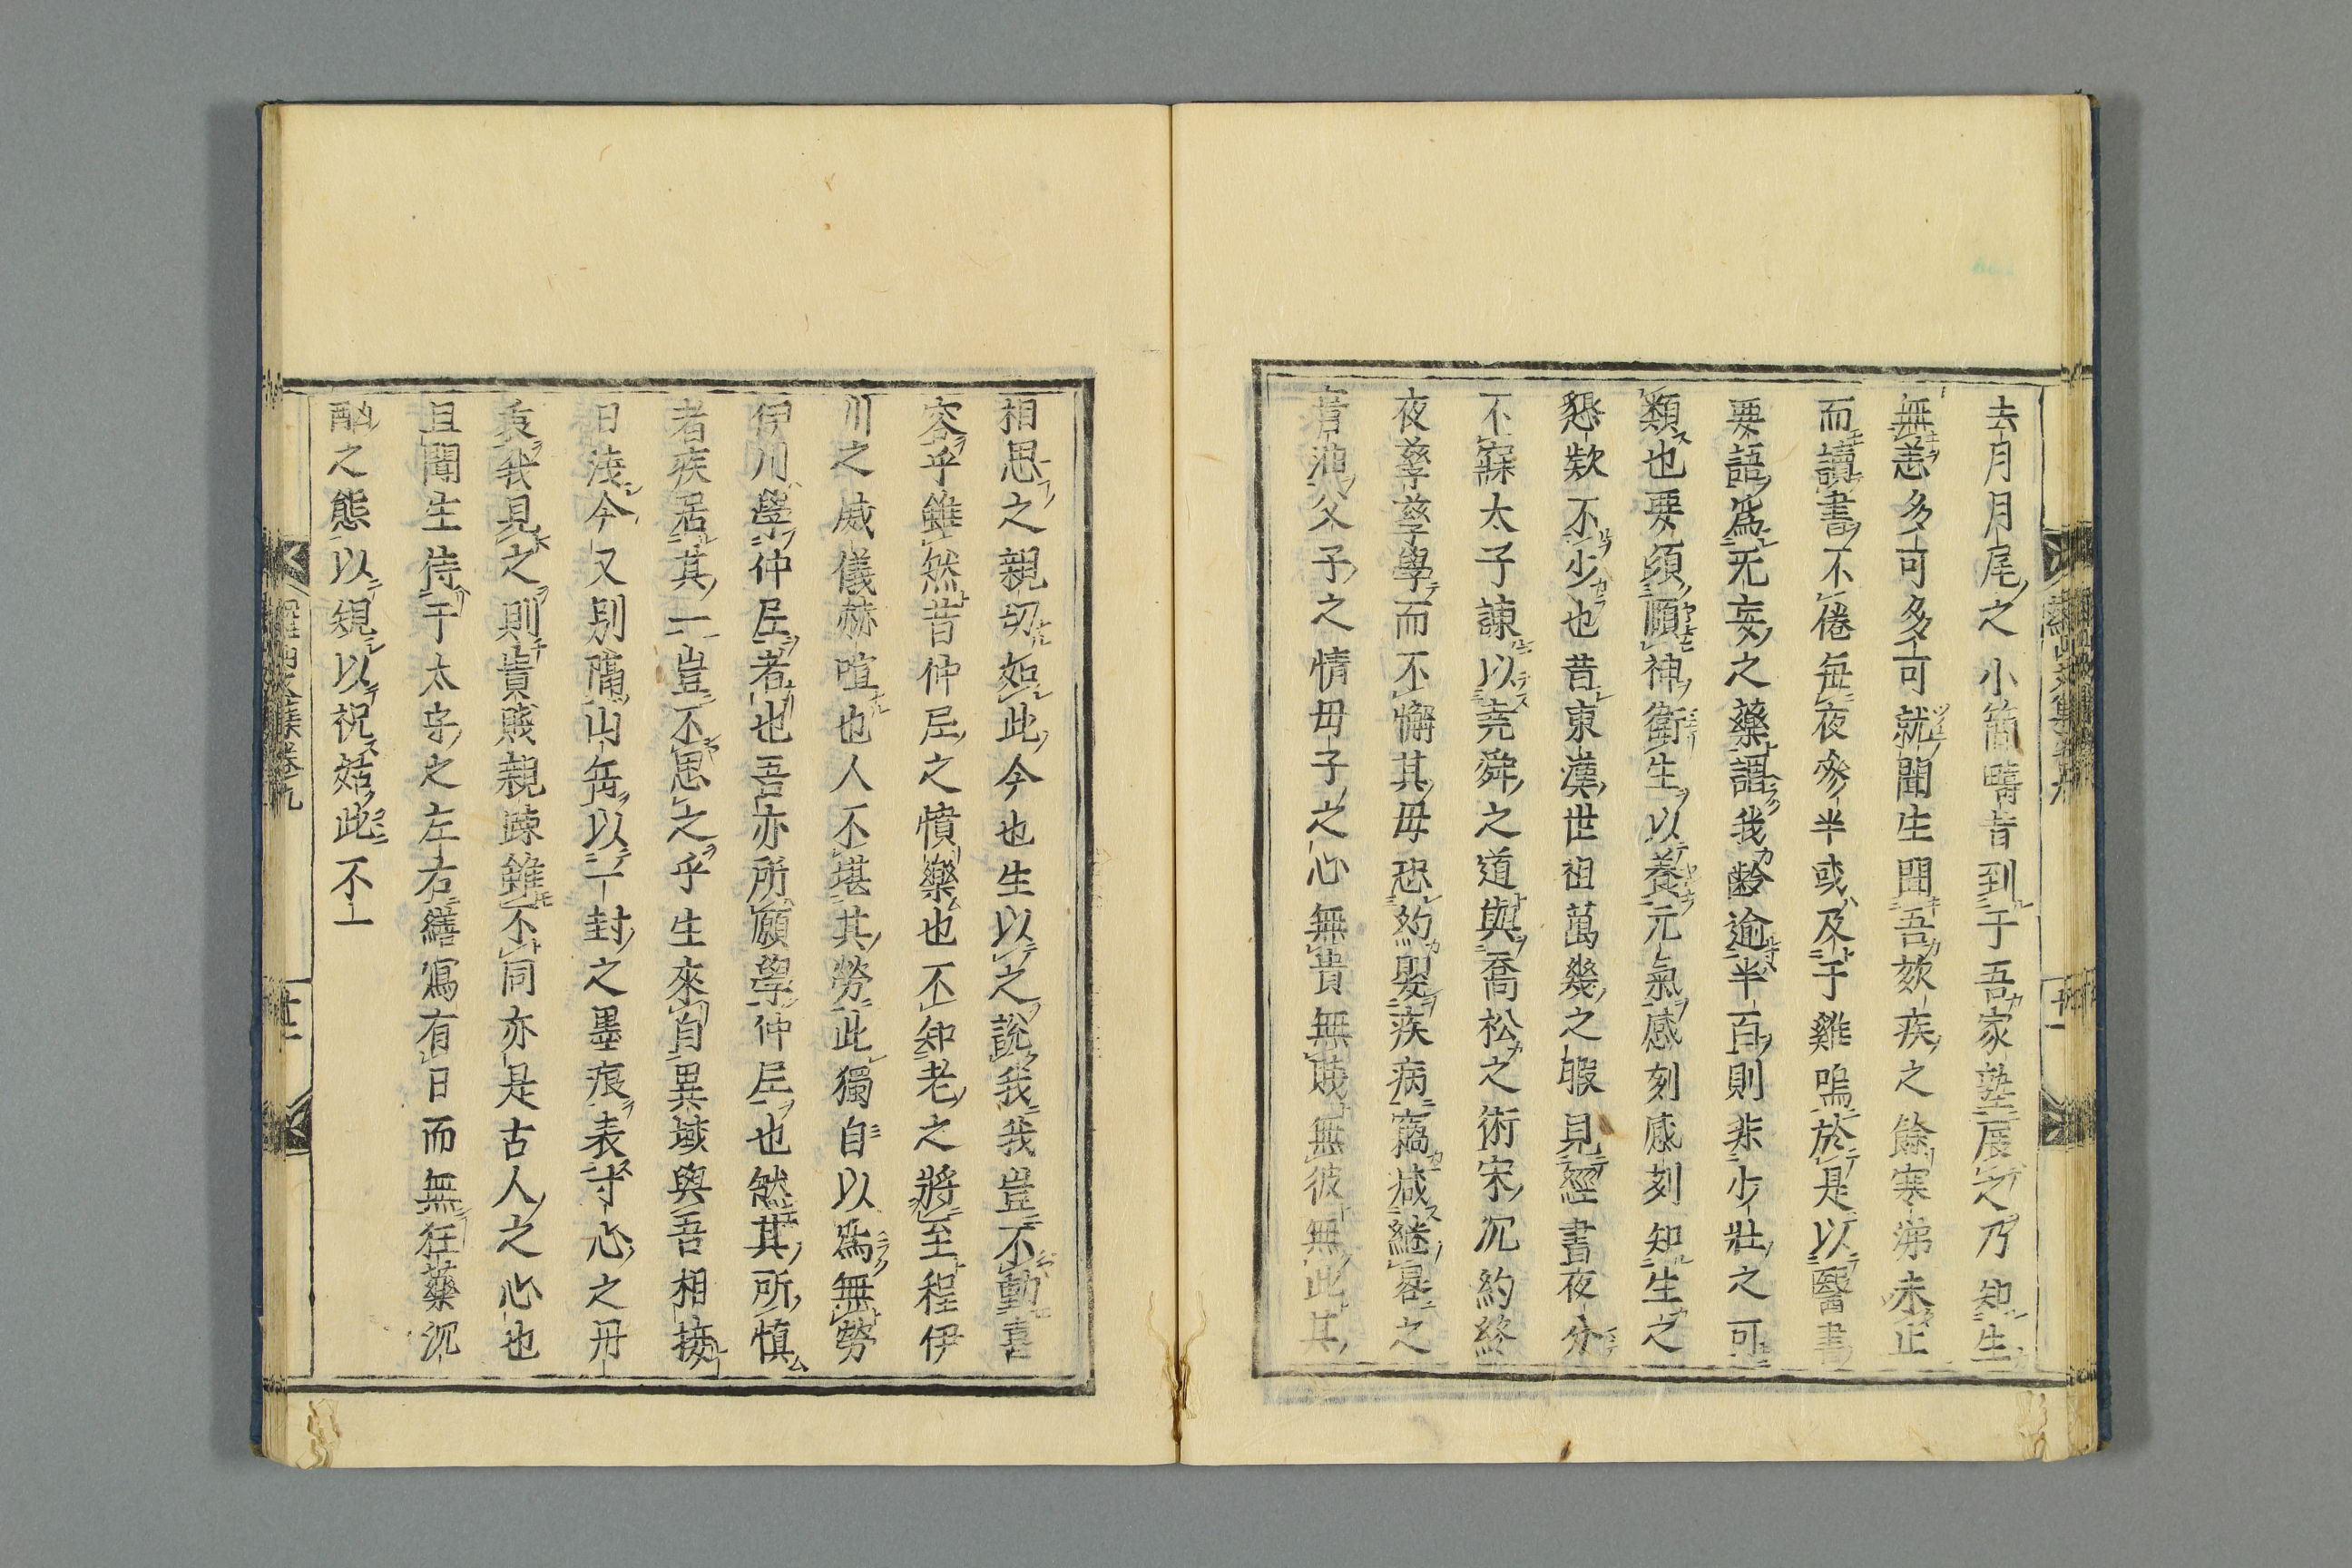 去月月尾之小簡疇昔到于吾家塾展之乃知生
無恙多可多可就聞生聞吾欬疾之餘寒涕未止
而讀書不倦每夜參半或及于雞鳴於是以醫書
要語爲无妄之藥謂我齡逾半百則非少壯之可
類也要須順神衛生以養元氣感刻感刻知生之
懇欵不少也昔東漢世祖萬幾之暇見經書夜分
不寐太子諫以堯舜之道與喬松之術宋沉約終
夜孳孳學而不懈其母恐約嬰疾病竊減繼晷之
膏油父子之情母子之心無貴無賤無彼無此其
相思之親切如此今也生以之說我我豈不動喜
容乎雖然昔仲尼之憤樂也不知老之將至程伊
川之威儀赫喧也人不堪其勞此獨自以爲無勞
伊川學仲尼者也吾亦所願學仲尼也然其所慎
者疾居其一豈不思之乎生來自異域與吾相接
日淺今又別隔山缶以一封之墨痕表寸心之丹
衷我見之則貴賤親疎雖不同亦是古人之心也
且聞生侍于太守之左右繕寫有日而無狂藥沉
酗之態以規以祝姑此不一
羅山文集卷九